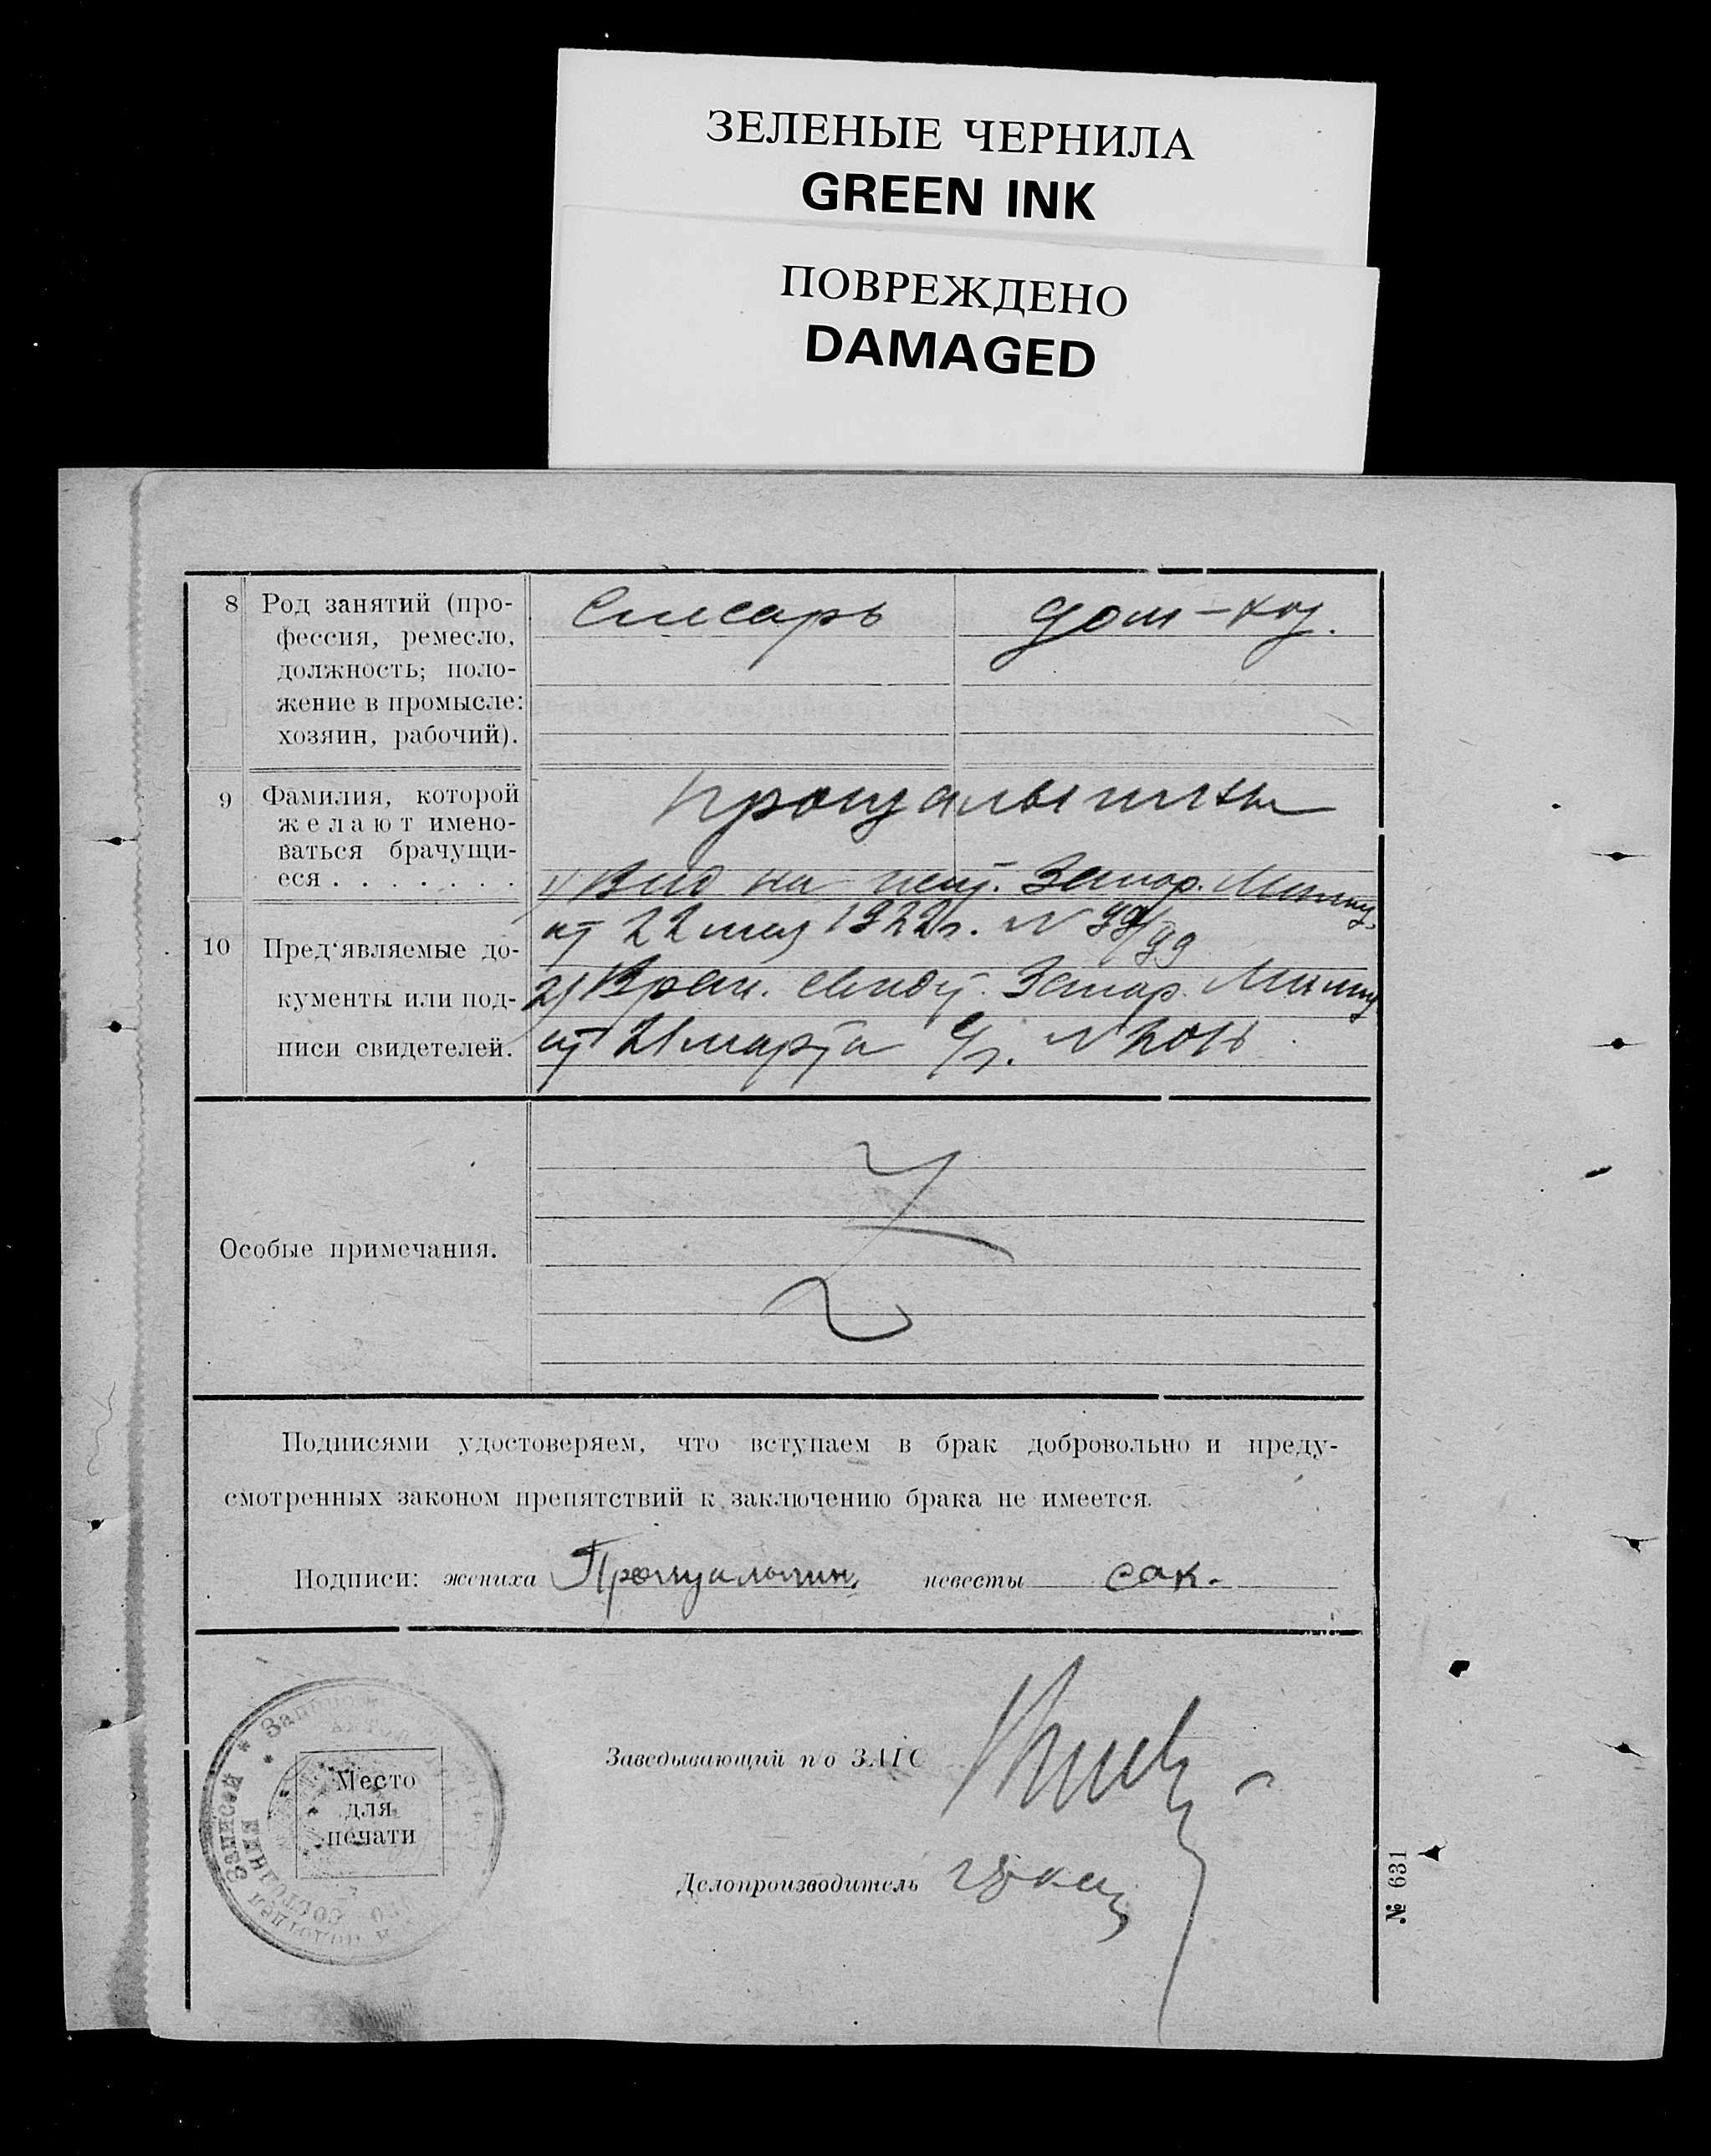 ЗЕЛЕНЫЕ ЧЕРНИЛА
GREEN INK
ПОВРЕЖДЕНО
DAMAGED
8 Род занятий (про-
фессия, ремесло,
должность; поло-
жение в промысле:
хозяин, рабочий).
Слесарь дом-хоз.
9 Фамилия, которой
желают имено-
ваться брачущи-
еся . . . . . . .
10 Пред'являемые до-
кументы или под-
писи свидетелей.
1) Вид на жит. Запор. Милиц.
от 22 мая 1922 г. N
2) Врем. свидет. Запор. Милиц
от 21 марта с/г. N 2018
Особые примечания.
Подписями удостоверяем, что вступаем в брак добровольно и преду-
смотренных законом препятствий к заключению брака не имеется.
Подписи: жениха невесты
Заведывающий п/о ЗАГС
Место
для
печати
Делопроизводитель
№ 631